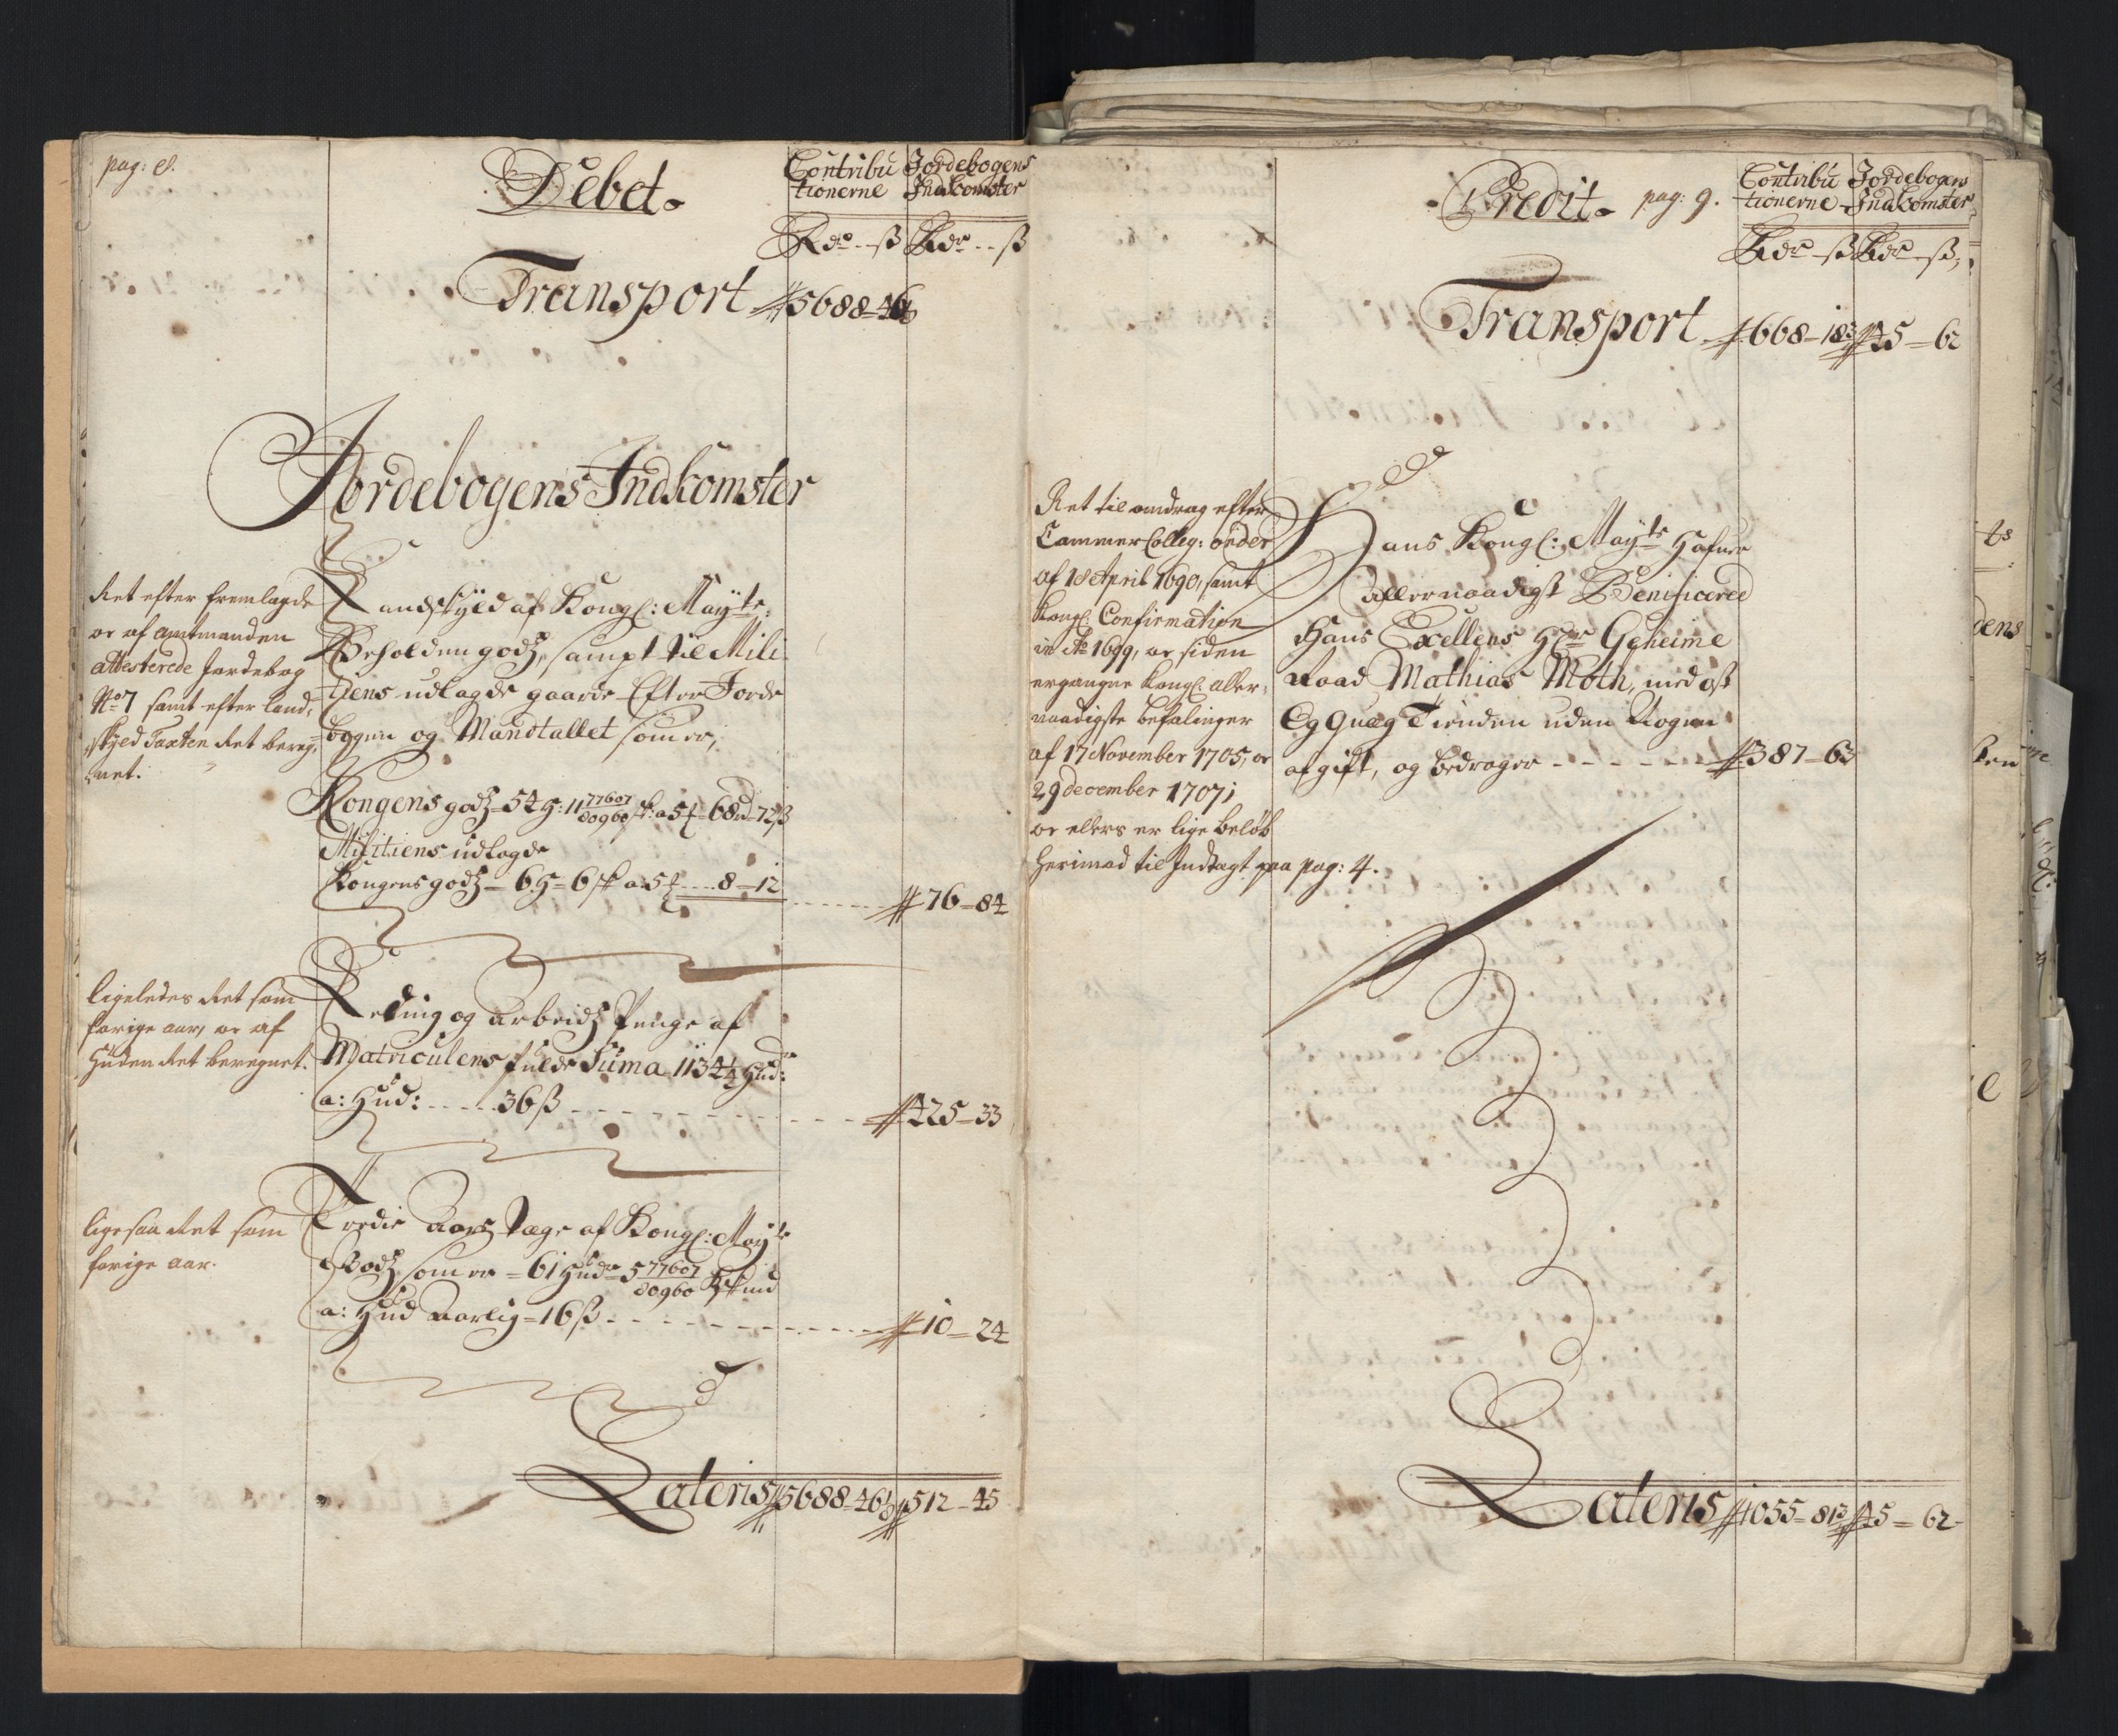 pag: 8.
Debet.
Contribu
tionerne
Jordebogens
Indkomster
Rdr - ß Rdr - - ß
Transport 5688-46
Jordebogens Indkomster
Ret efter fremlagde
or af Amtmanden
attesterede Jordebog
No 7 samt efter land-
skyld Taxten Ret bereg-
net.
Landskyld af Kongl: Mayts:
Beholden godz, sampt til Mili
tiens udlagde gaarde Efter Jorde
bogen og Mandtallet som er,
Kongens godz - 54 H: 11 77607/80960 sk: a 5 - 68 rd - 72 ß
Militiens udlagde
Kongens godz - 6 H = 6 sk a: 5 .... 8 - 12
76 - 84
ligeledes Ret som
forige aar, or af
Huden Ret beregnet.
Leding og Arbeidz Penge af
Matriculens fulde Suma 1134¼ Hudr:
a: Hud: ..... 36 ß
425 - 33
ligesaa Ret som
forige aar.
Tredie Aars Tage af Kongl: Mayts
Godz som er = 61 Hudr 5 77607/80960
a: Hud Aarlig = 16 ß
10 - 24
Lateris 5688 - 46 512 - 45
Credit. pag: 9.
Contribu
tionerne
Jordebogens
Indkomster
Rdr - ß Rdr - ß
Transport 668 - 18 45 - 62
Ret til andrag efter
Cammer Colleg: order
af 18 April 1690, samt
Kongl: Confirmation
in Ao 1699, or siden
ergangne Kongl. aller-
naadigste befalinger
af 17 November 1705, or
29 december 1707;
or ellers er lige beløb
herimod til Indtagt paa pag: 4.
Hans Kongl: Mayts Hafuer
allernaadigst Benificered
Hans Excellens Hr Geheime
Raad Mathias Moth, med ost
Og Quæg Tienden uden Nogen
afgift, og bedrager - - - - - 387 - 63
Lateris 1055 - 81 45 - 62